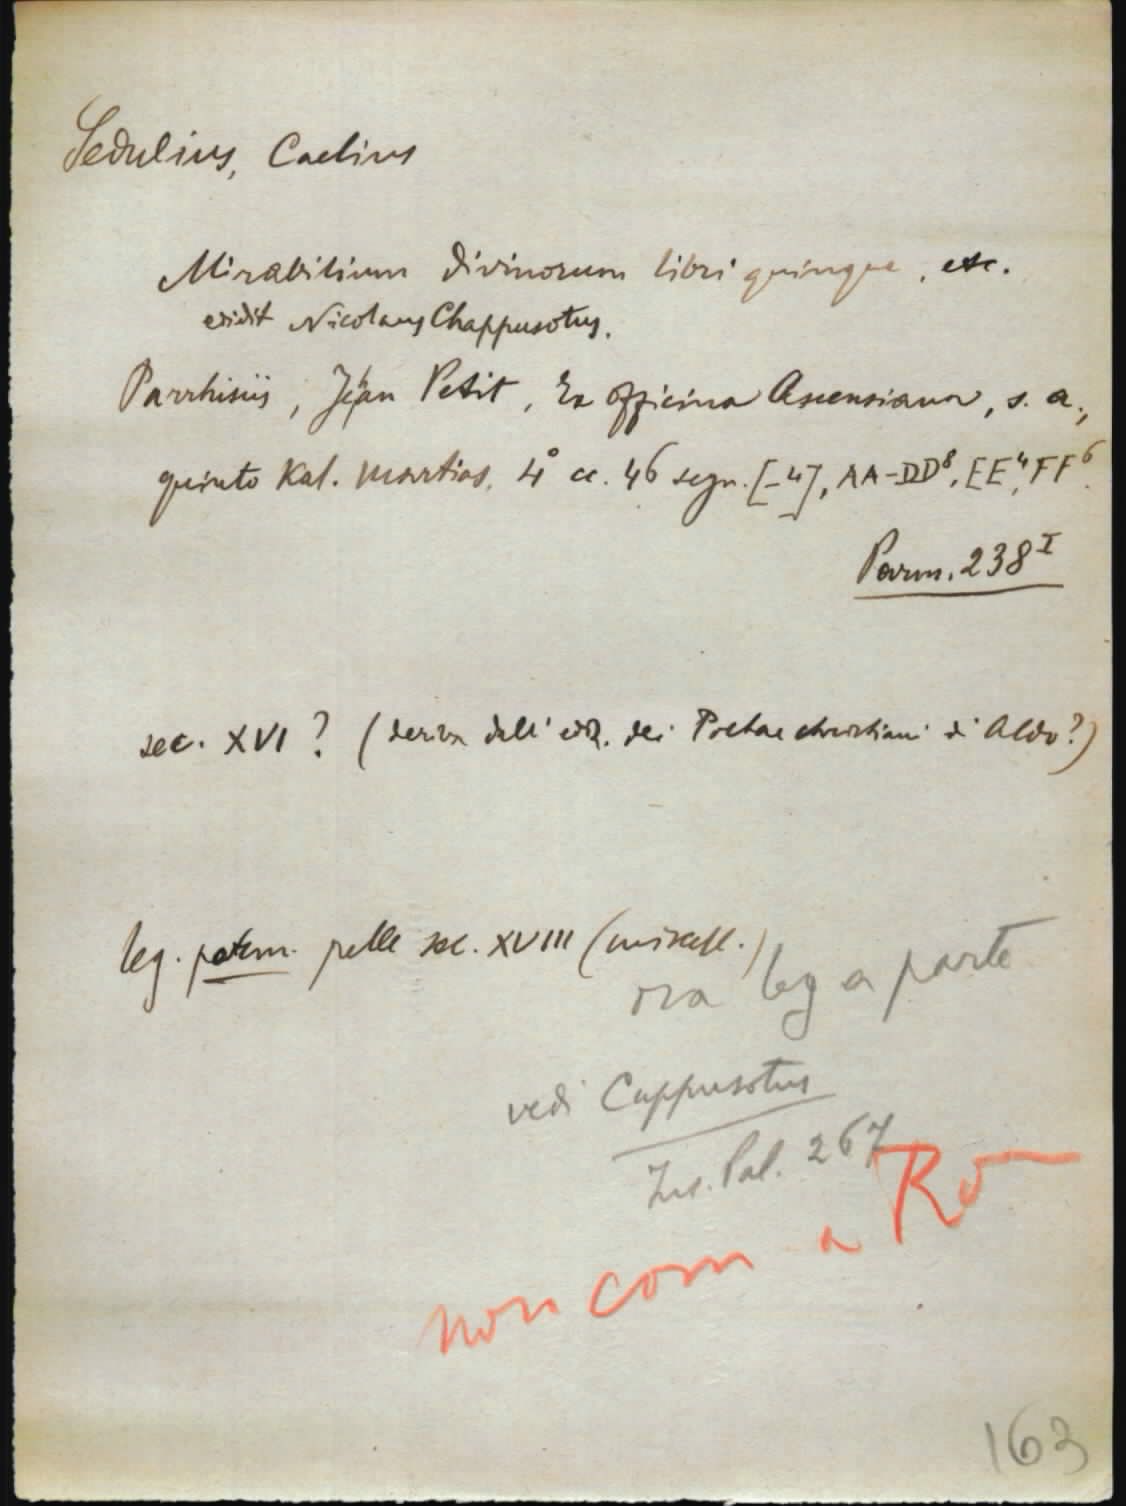 Sedulius, Caelius
Mirabilium divinorum libri quinque, etc.
edidit Nicolaus Chappusotus.
Parrhisiis, Jehan Petit, Ex officina Ascensiana, s. a.,
quinto Kal. Martias. 4° cc. 46 segn. [-4], AA-DD⁸, EE⁴, FF⁶.
Parm. 238ᴵ
sec. XVI? (deriva dall' ediz. dei Poetae christiani di Aldo?)
leg. patm. pelle sec. XVIII (miscell.)
ora leg a parte
vedi Cappusotus
Inc. Pal. 267
non com a Ro
163